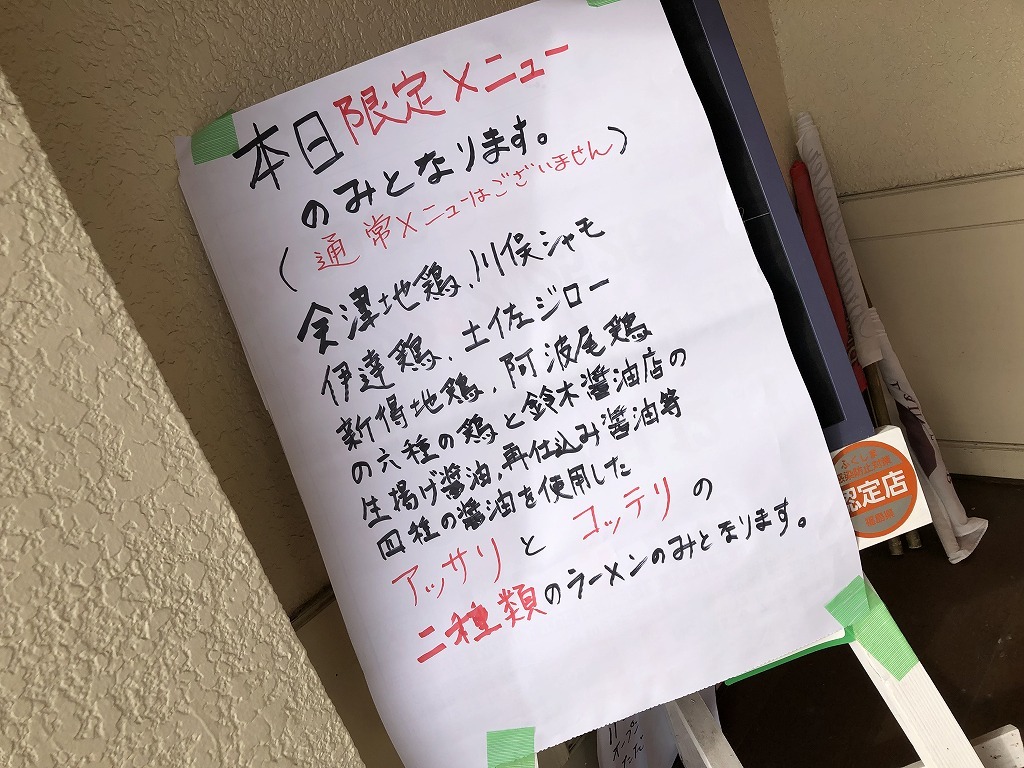 本日限定メニュー
のみとなります。
(通常メニューはございません)
会津地鶏、川俣シャモ
伊達鶏、土佐ジロー
新得地鶏、阿波尾鶏
の六種の鶏と鈴木醬油店の
生揚げ醬油、再仕込み醬油等
四種の醬油を使用した
アッサリとコッテリの
二種類のラーメンのみとなります。
ふくしま
認定店
福島県